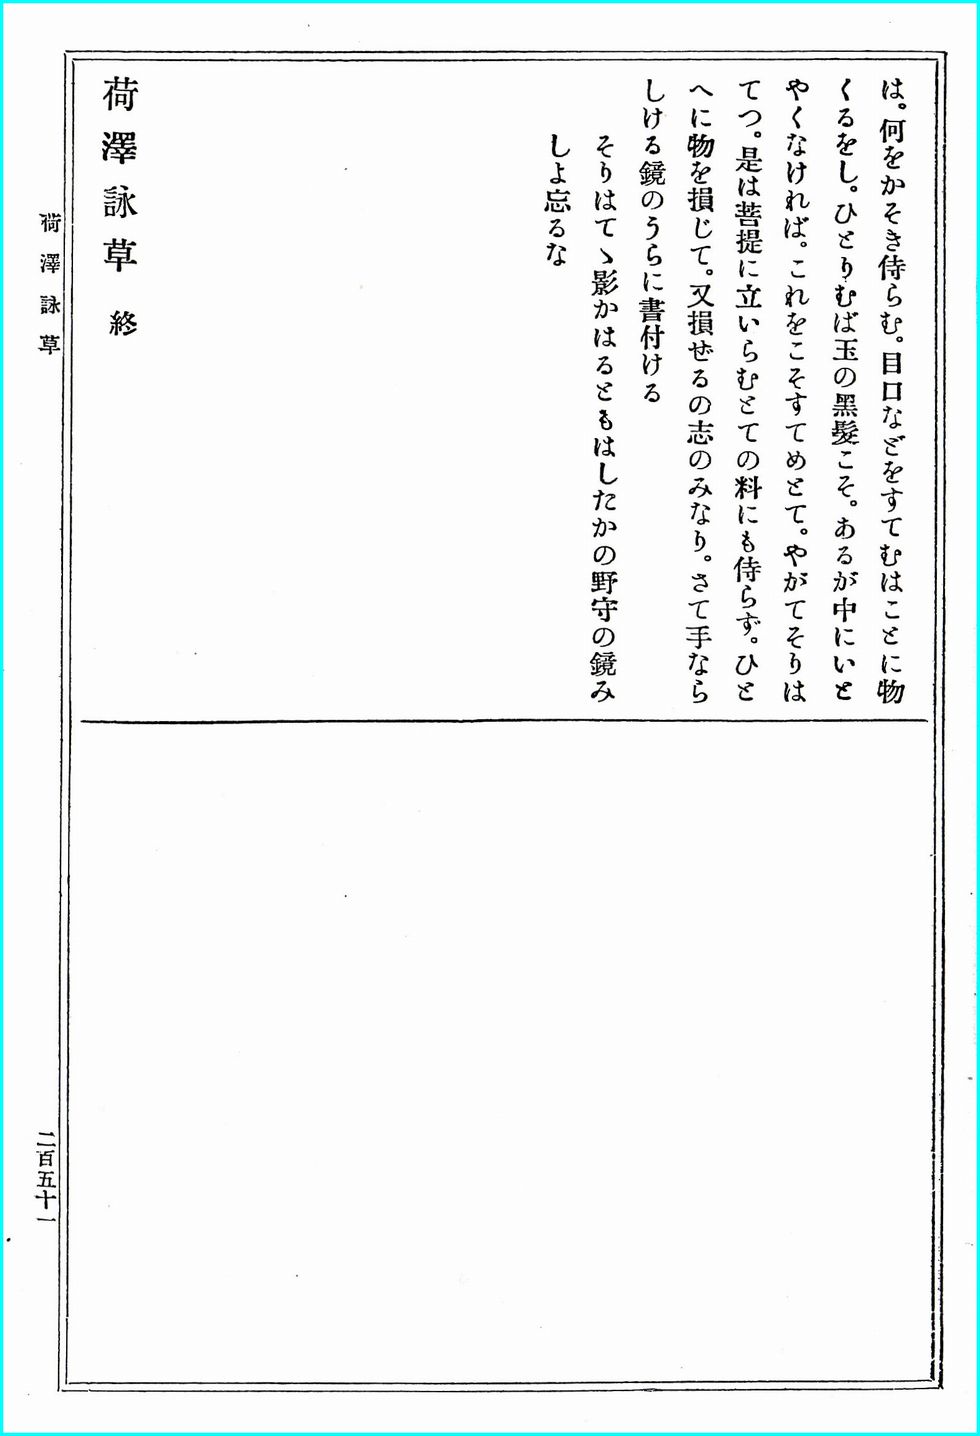 は。何をかそき侍らむ。目口などをすてむはことに物
くるをし。ひとりむば玉の黑髮こそ。あるが中にいと
やくなければ。これをこそすてめとて。やがてそりは
てつ。是は菩提に立いらむとての料にも侍らず。ひと
へに物を損じて。又損ぜるの志のみなり。さて手なら
しける鏡のうらに書付ける
そりはてゝ影かはるともはしたかの野守の鏡み
しよ忘るな
荷澤詠草 終
荷澤詠草
二百五十一